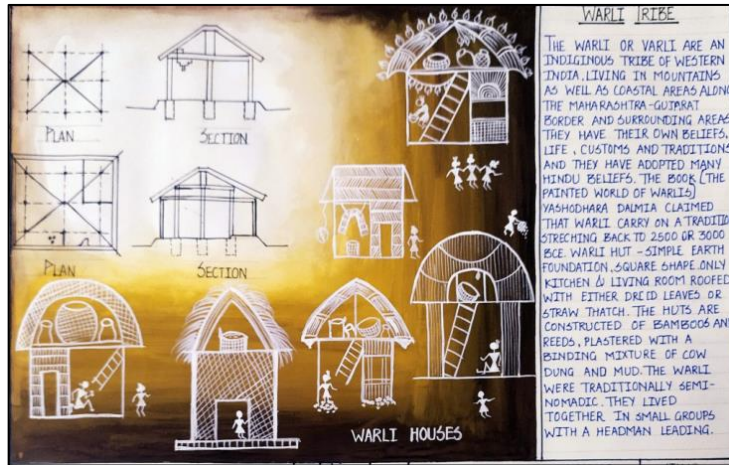 PLAN
SECTION
PLAN
SECTION
WARLI HOUSES
WARLI TRIBE
THE WARLI OR VARLI ARE AN
INDIGINOUS TRIBE OF WESTERN
INDIA, LIVING IN MOUNTAINS
AS WELL AS COASTAL AREAS ALONG
THE MAHARASHTRA-GUJPRAT
BORDER AND SURROUNDING AREAS
THEY HAVE THEIR OWN BELIEFS,
LIFE, CUSTOMS AND TRADITIONS
AND THEY HAVE ADOPTED MANY
HINDU BELIEFS. THE BOOK (THE
PAINTED WORLD OF WARLIS)
YASHODHARA DALMIA CLAIMED
THAT WARLI CARRY ON A TRADITIO
STRECHING BACK TO 2500 OR 3000
BCE. WARLI HUT - SIMPLE EARTH
FOUNDATION, SQUARE SHAPE. ONLY
KITCHEN & LIVING ROOM ROOFED
WITH EITHER DREID LEAVES OR
STRAW THATCH. THE HUTS ARE
CONSTRUCTED OF BAMBOOS AN
REEDS, PLASTERED WITH A
BINDING MIXTURE OF COW
DUNG AND MUD. THE WARLI
WERE TRADITIONALLY SEMI-
NOMADIC. THEY LIVED
TOGETHER IN SMALL GROUPS
WITH A HEADMAN LEADING.